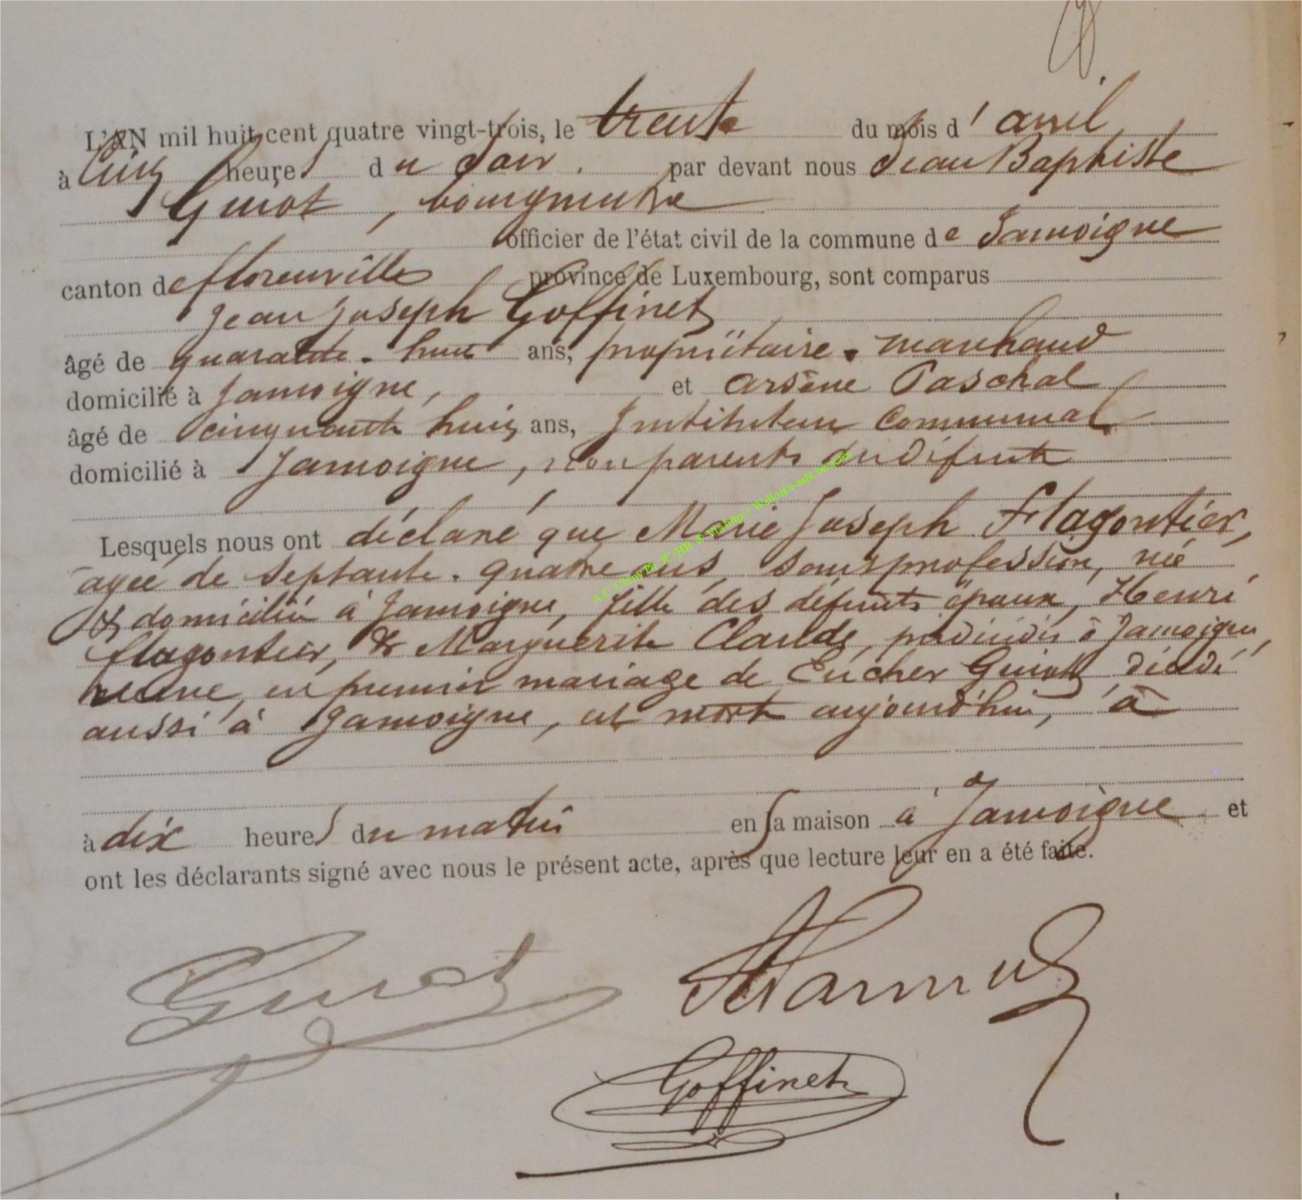 L'AN mil huit cent quatre vingt-trois, le trente du mois d'avril
à Cinq heures du soir. par devant nous Jean Baptiste
Guiot, bourgmestre
officier de l'état civil de la commune de Jamoigne
canton de florenville province de Luxembourg, sont comparus
Jean Joseph Goffinet
âgé de quarante-huit ans, propriétaire-marchand
domicilié à Jamoigne, et Arsène Paschal
âgé de cinquante huit ans, Instituteur communal
domicilié à Jamoigne, non parents du défunte
Lesquels nous ont déclaré que Marie Joseph Flagontier,
agée de Septante-quatre ans, sans profession, née
& domiciliée à Jamoigne, fille des défunts époux, Henri
flagontier, & Marguerite Claude, prédécédés à Jamoigne,
veuve, en premier mariage de Eucher Guiot décédé
aussi à Jamoigne, est morte aujourd'hui, à
à dix heures du matin en sa maison à Jamoigne et
ont les déclarants signé avec nous le présent acte, après que lecture leur en a été faite.
Guiot
Goffinet